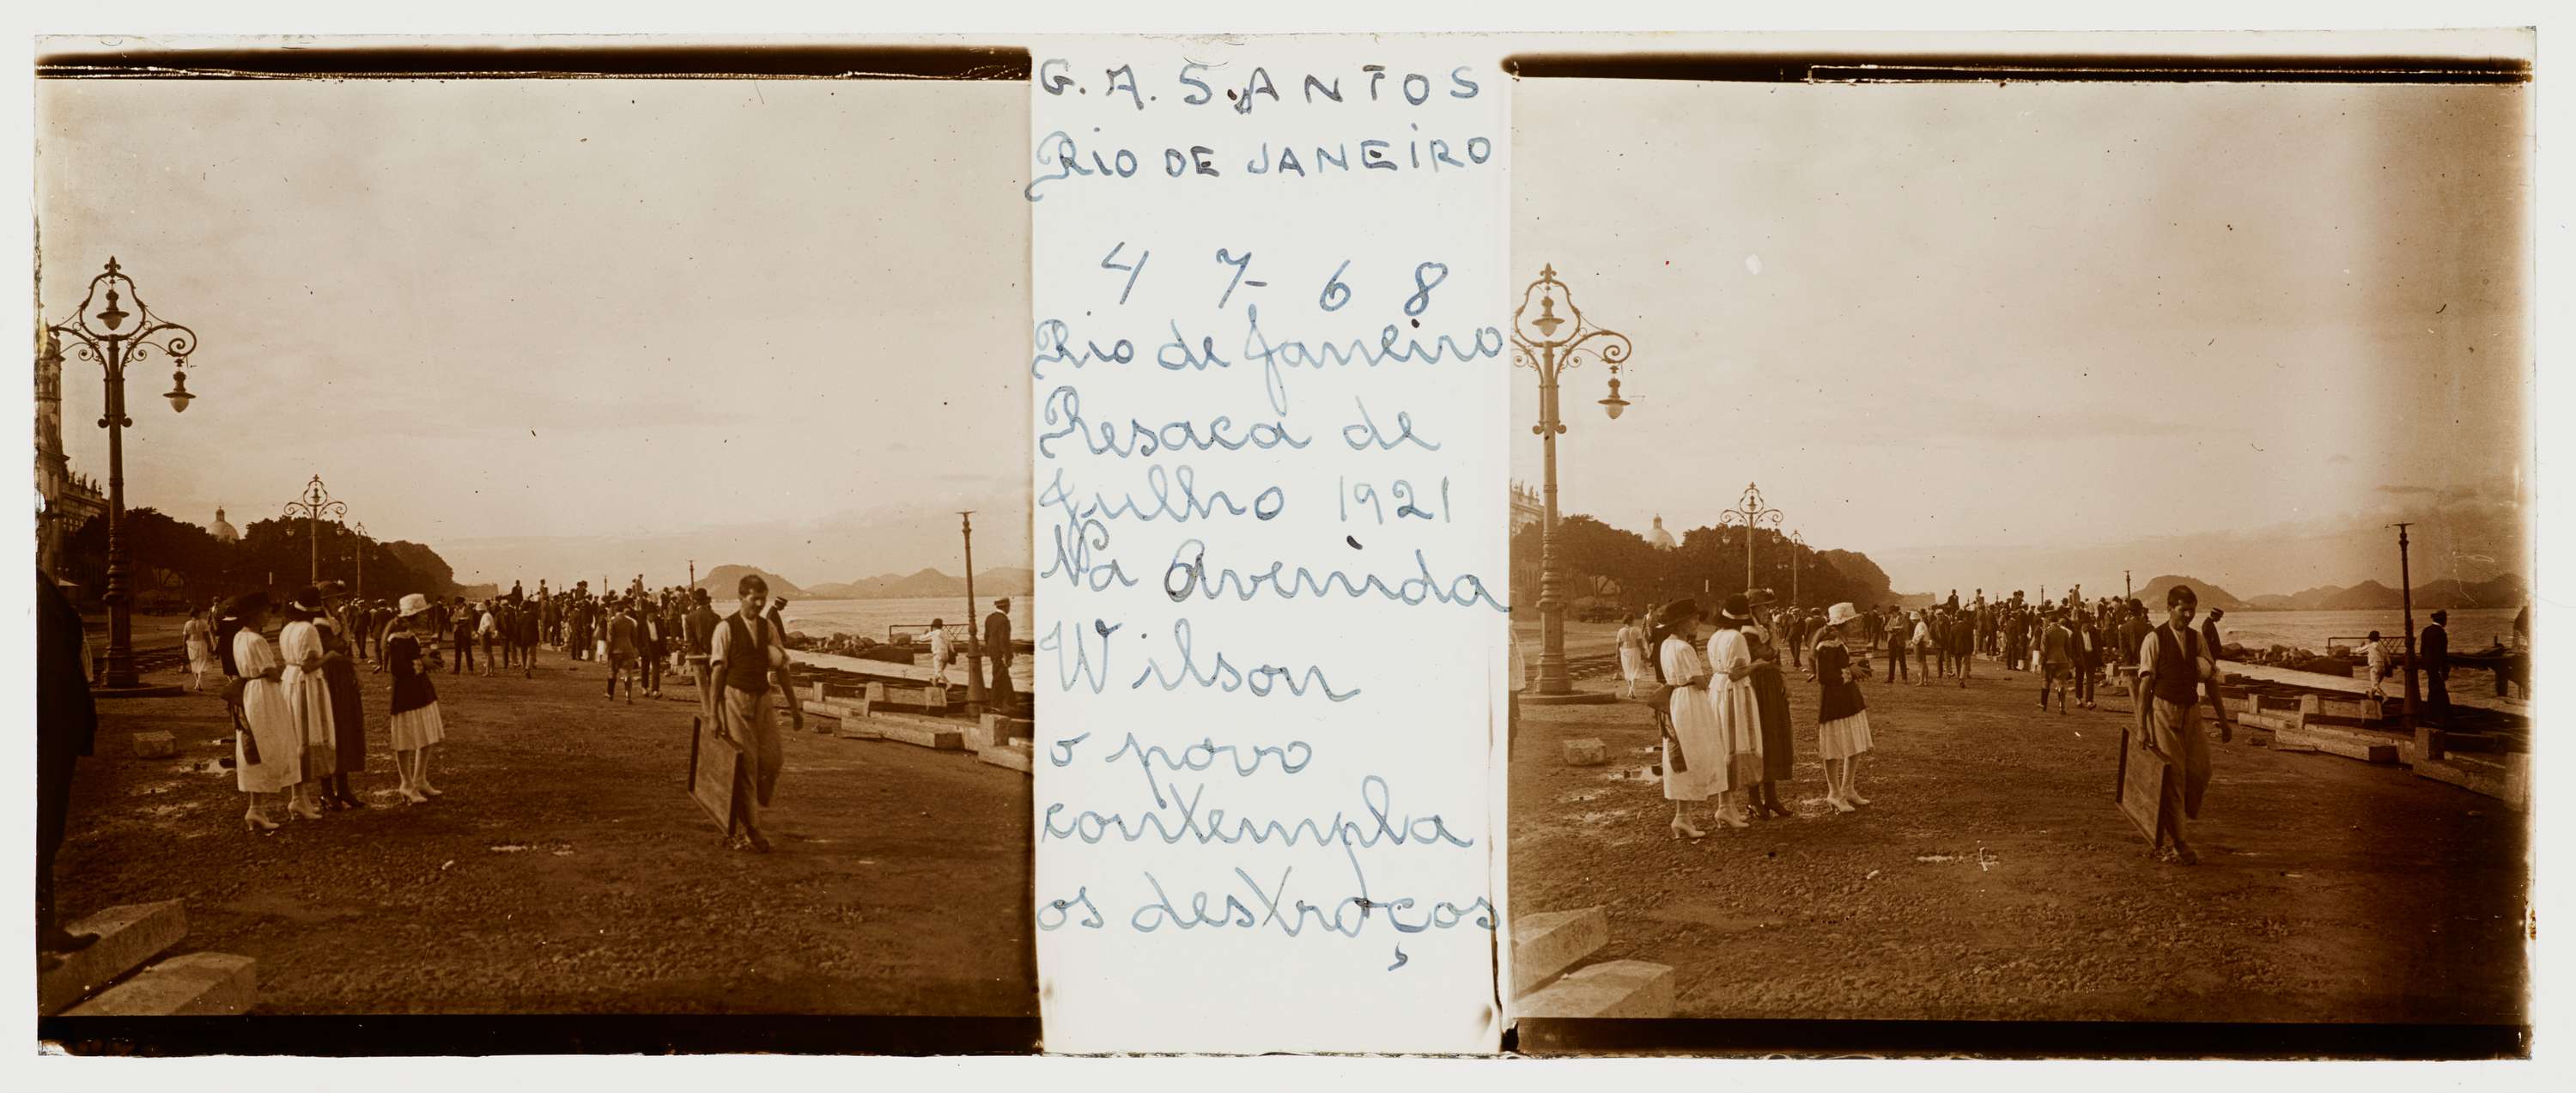 G. A. SANTOS
RIO DE JANEIRO
4768
Rio de Janeiro
Resaca de
Julho 1921
Na Avenida
Wilson
o povo
contempla
os destroços